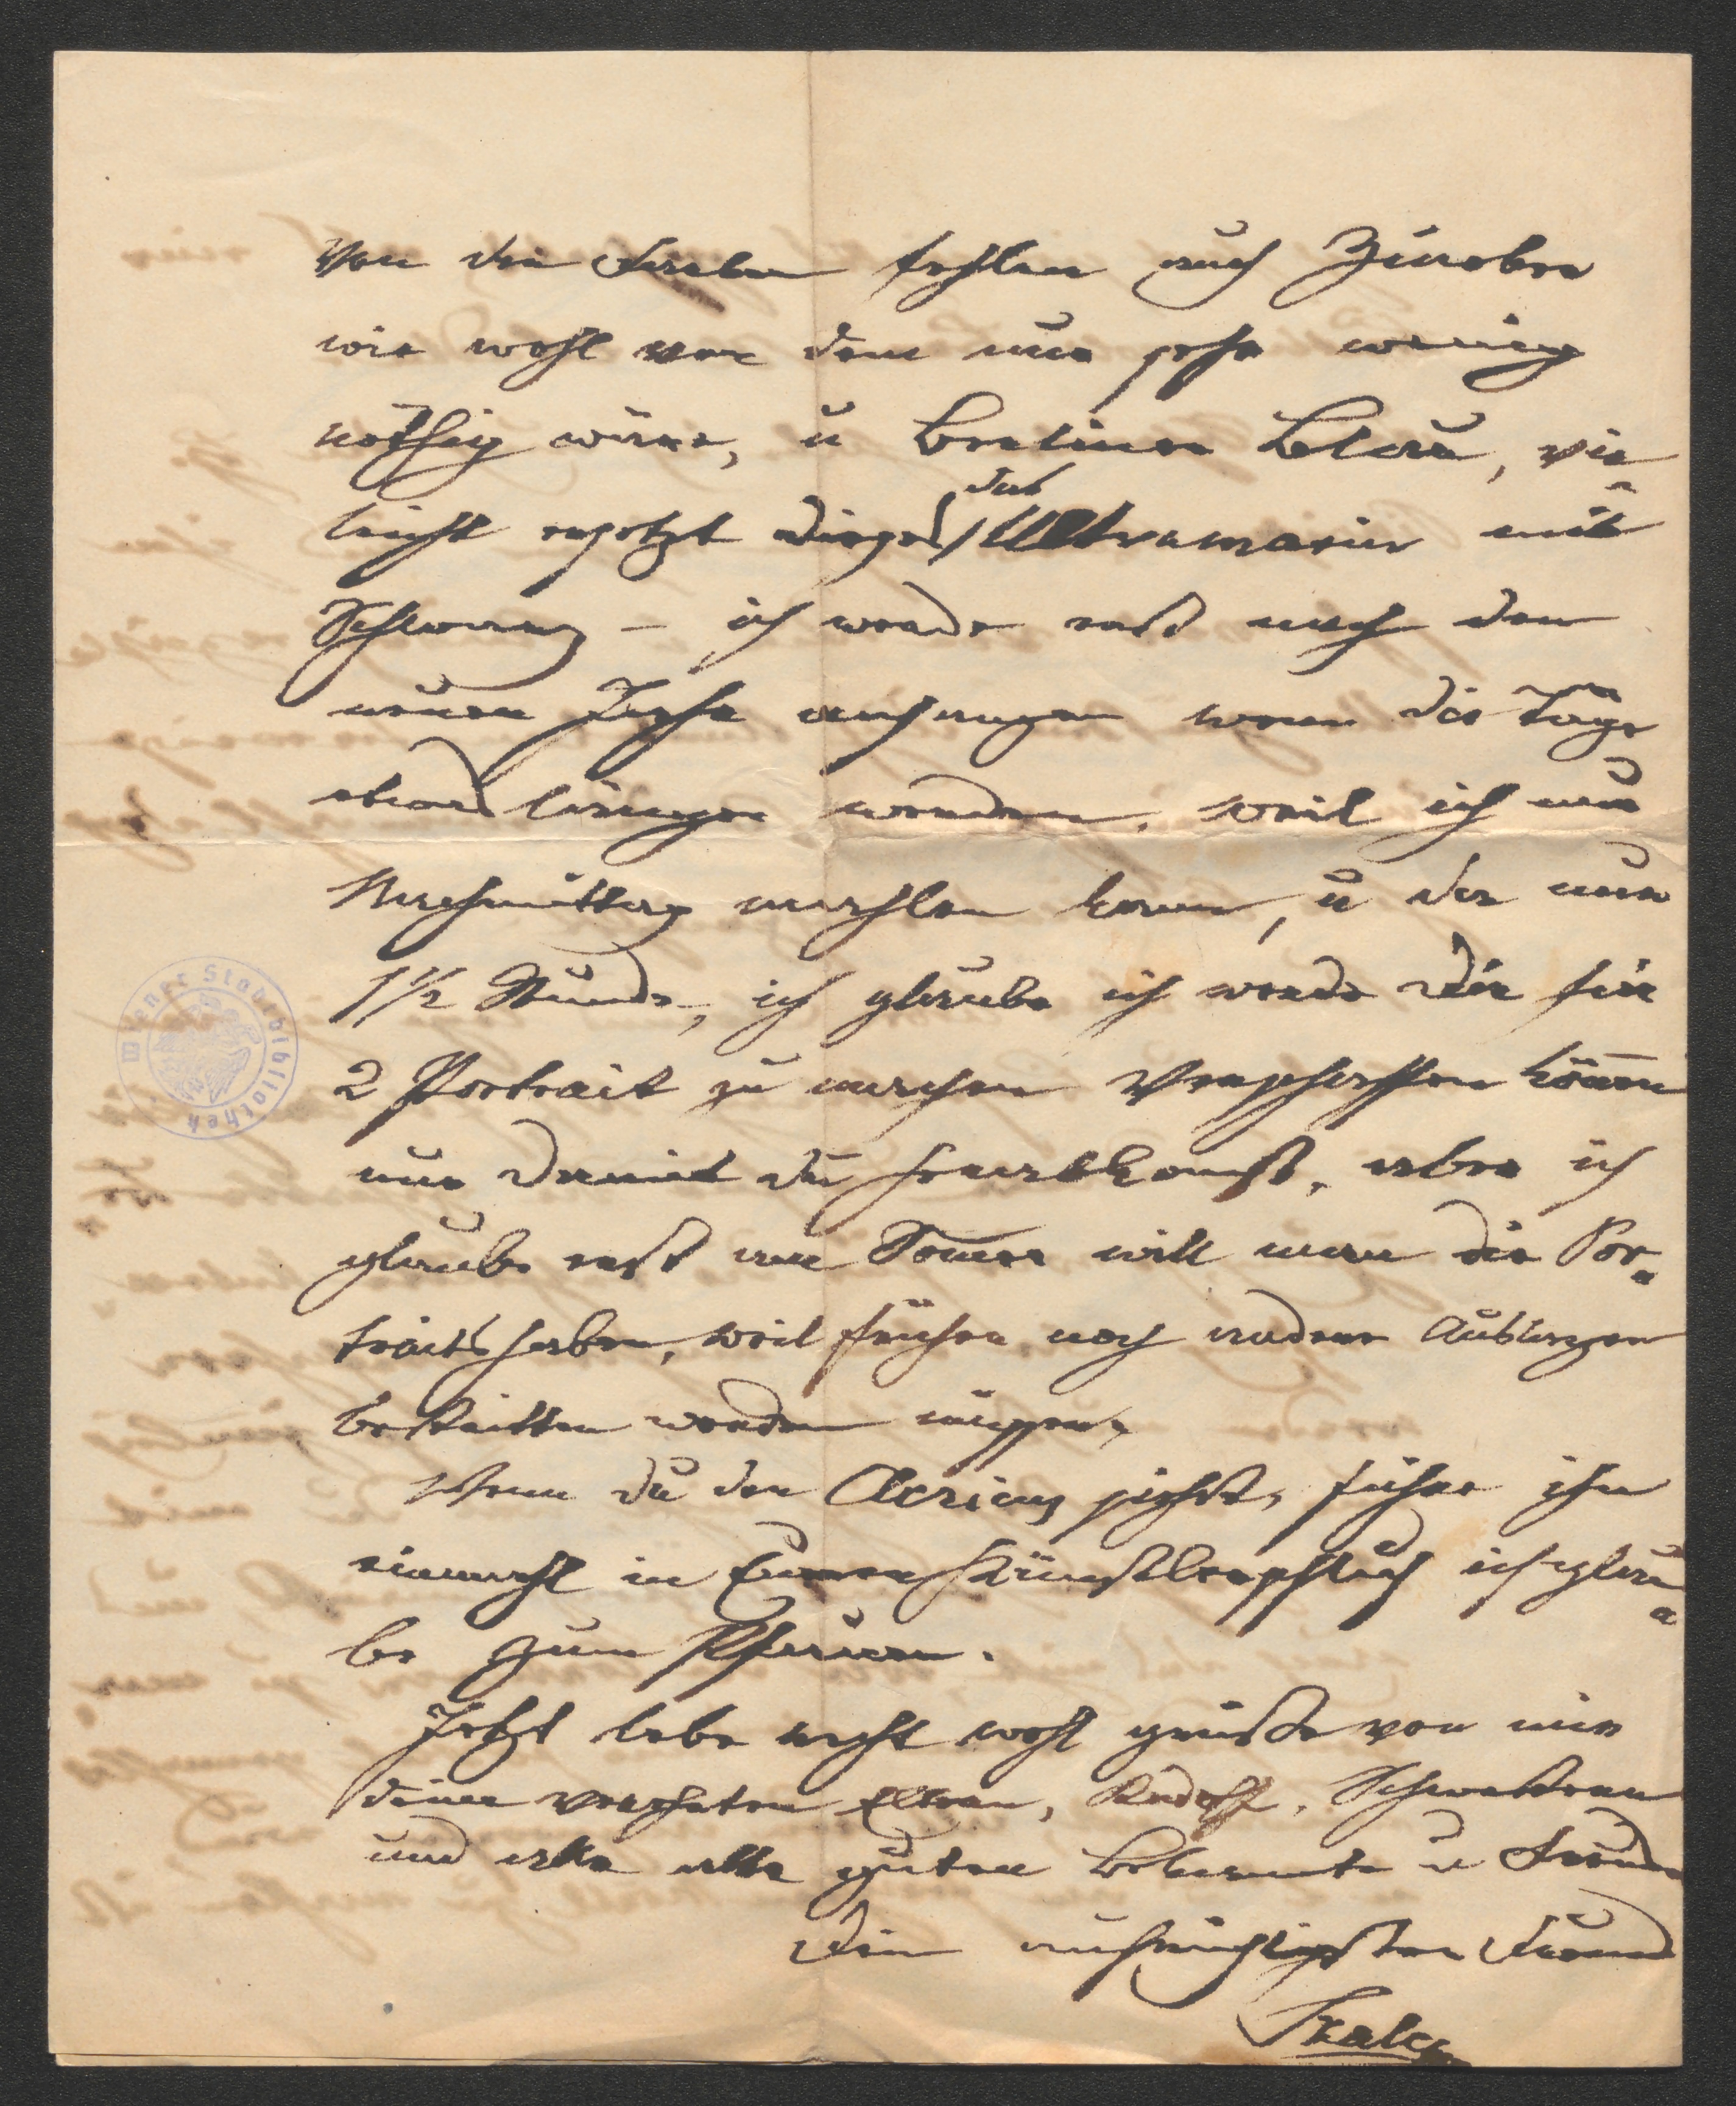 Von den Farben fehlen noch Zinober
wie wohl von dem nur sehr wenig
nöthig wäre, u Berliner Blau, vie-
leicht ersetzt dieses das Ultramarin mit
Schwarz – ich werde erst nach dem
neuen Jahr anfangen wenn die Täge
etwas länger werden. weil ich nur
Nachmittag mahlen kann, u da nur
1½ Stunde, ich glaube ich werde dir für
2 Portrait zu machen verschaffen können
nur damit du herauskomst, aber ich
glaube erst im Somer will man die Por-
traits haben, weil früher noch andere Auslagen
bestritten werden müssen.
Wenn du den siehst, führe ihn
einmahl in Euren Künstler ich glau-
be zum
Jetzt lebe recht wohl grüsse von mir
deine verehrten Eltern, Rudolf, Schwestern
und alle alle guten Bekannte u Freunde
Dein aufrichtigster Freund
Wiener Stadtbibliothek